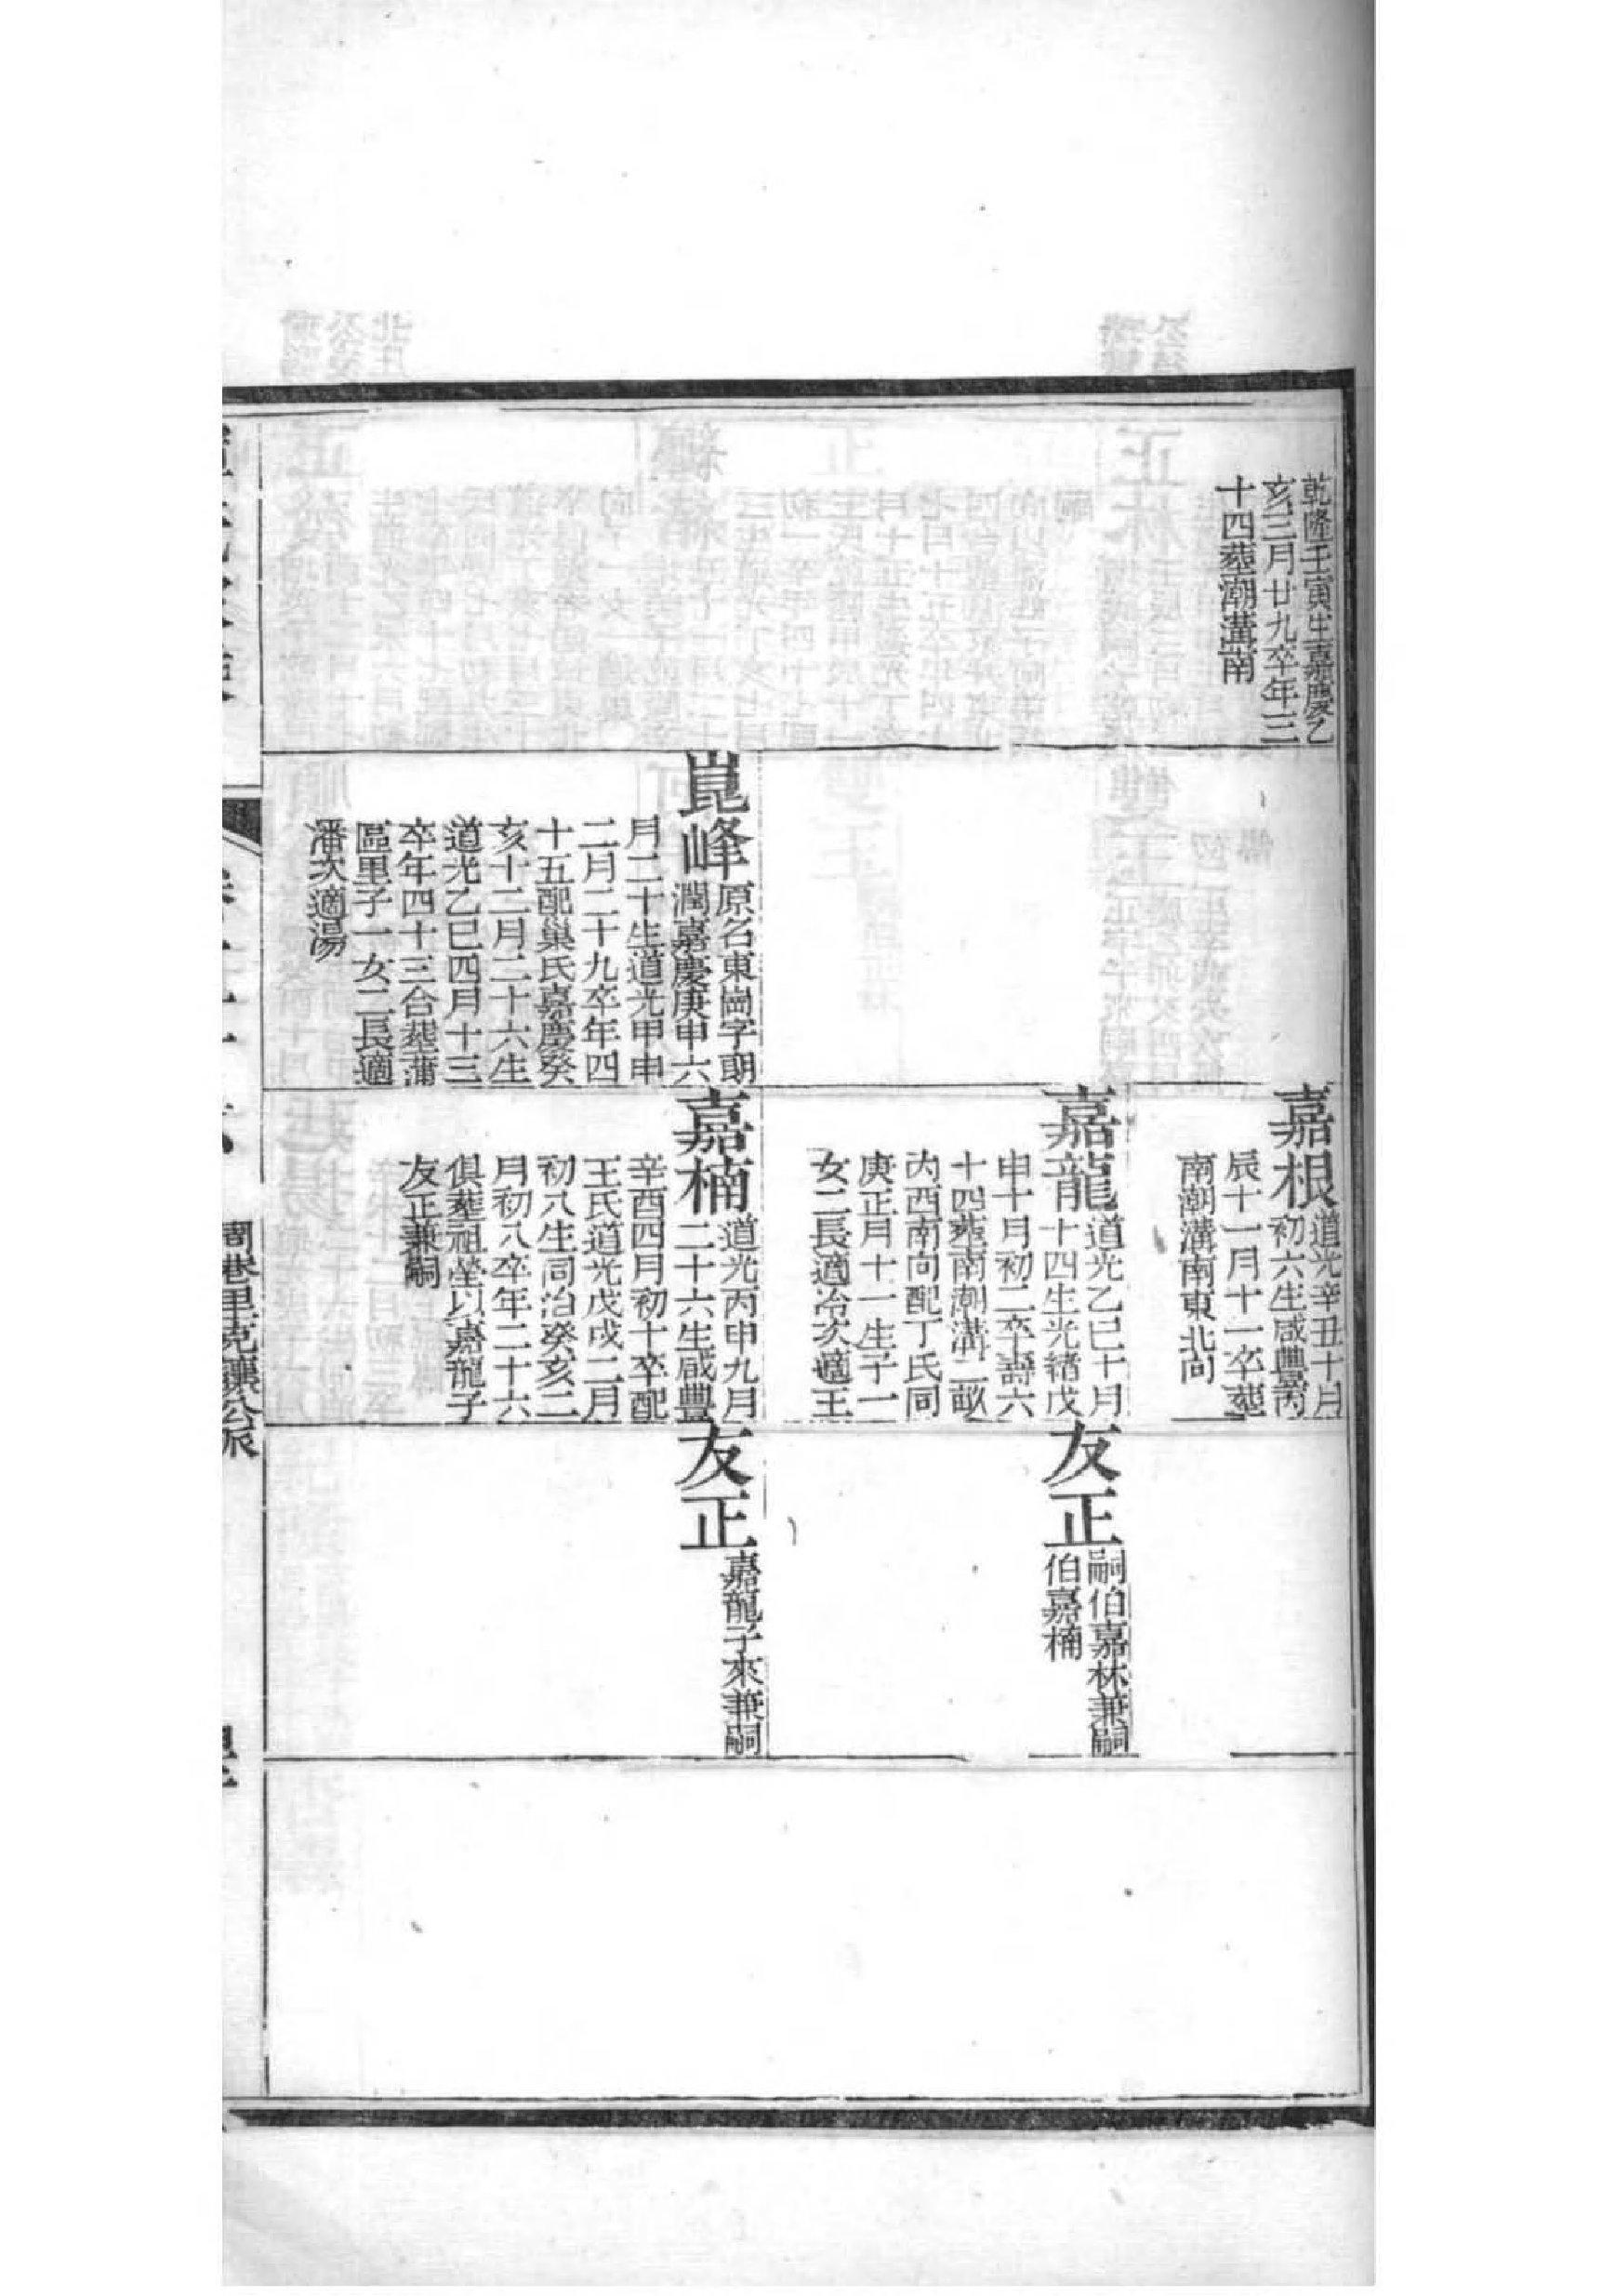 乾隆壬寅生嘉慶乙
亥三月廿九卒年三
十四葬潮溝南
崑峰
原名東崗字朗
潤嘉慶庚申六
月二十生道光甲申
二月二十九卒年四
十五配巢氏嘉慶癸
亥十二月二十六生
道光乙巳四月十三
卒年四十三合葬蒲
區里子一女二長適
潘次適湯
嘉根
道光辛丑十月
初六生咸豐丙
辰十一月十一卒葬
南潮溝南東北向
嘉龍
道光乙巳十月
十四生光緒戊
申十月初二卒壽六
十四葬南潮溝二畝
內西南向配丁氏同
庚正月十一生子一
女二長適冶次適王
嘉楠
道光丙申九月
二十六生咸豐
辛酉四月初十卒配
王氏道光戊戌二月
初八生同治癸亥二
月初八卒年二十六
俱葬祖塋以嘉龍子
友正兼嗣
友正
嗣伯嘉林兼嗣
伯嘉楠
友正
嘉龍子來兼嗣
周巷里克讓公派